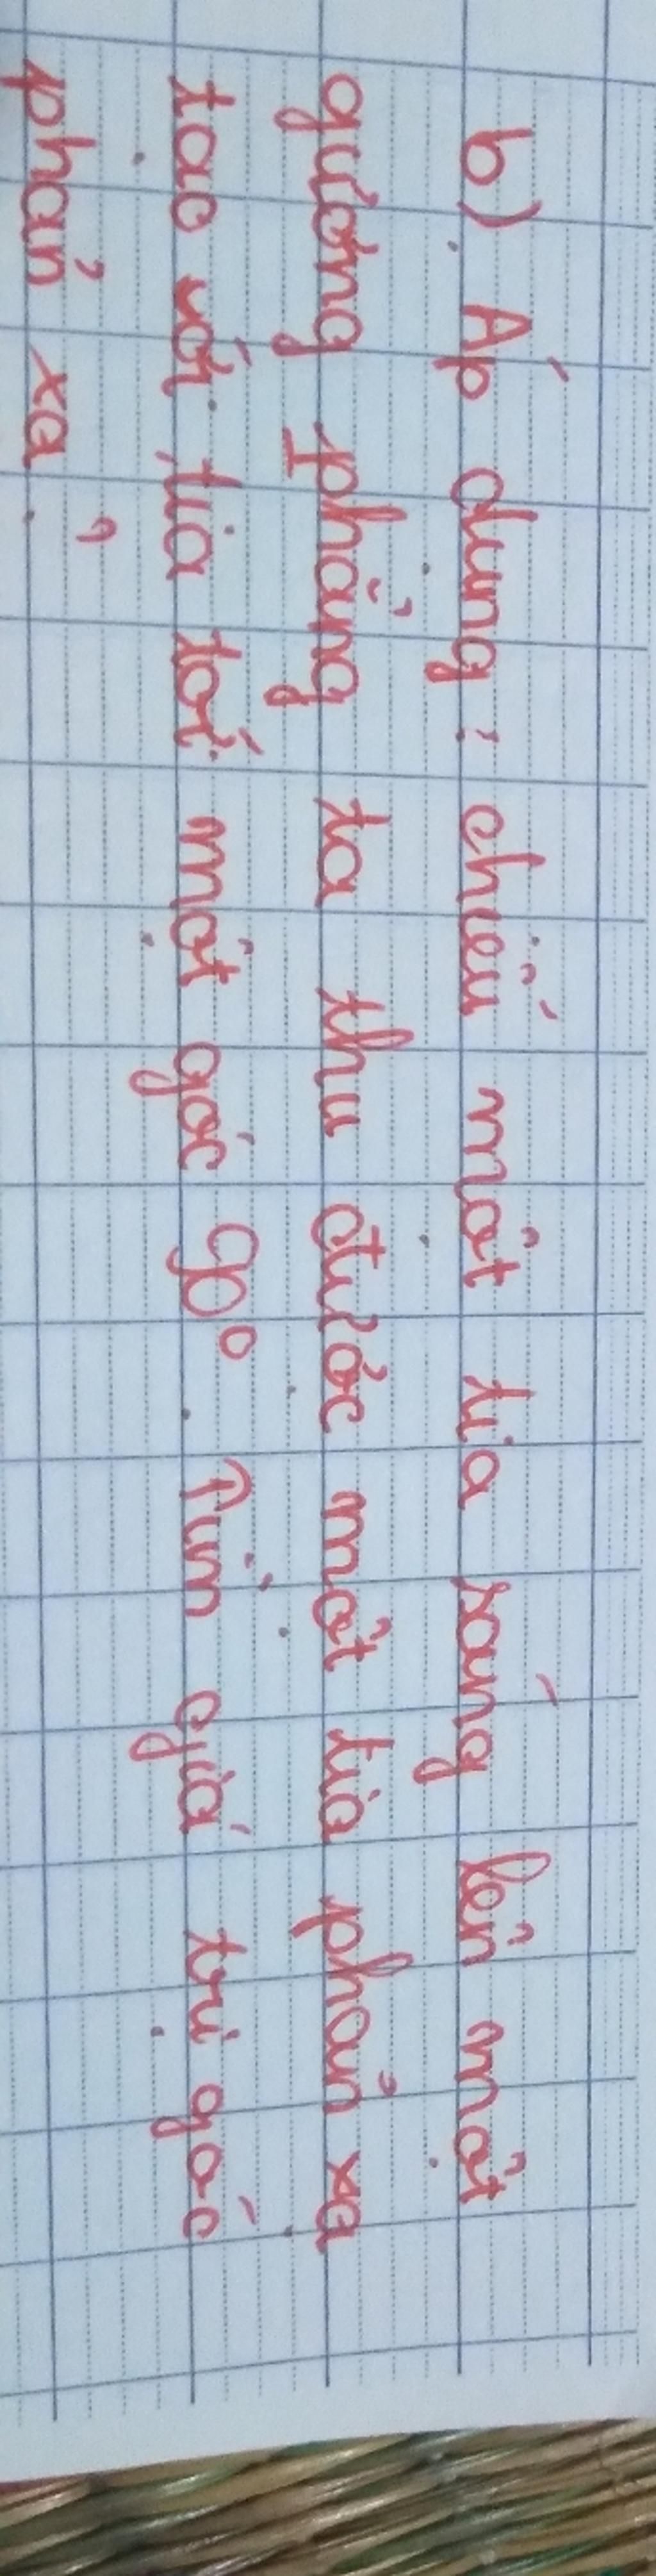 b) Áp dụng: chiếu một tia sáng lên một
gương phẳng ta thu được một tia phản xạ
tạo với tia tới một góc 90°. Tìm giá trị góc
phản xạ?